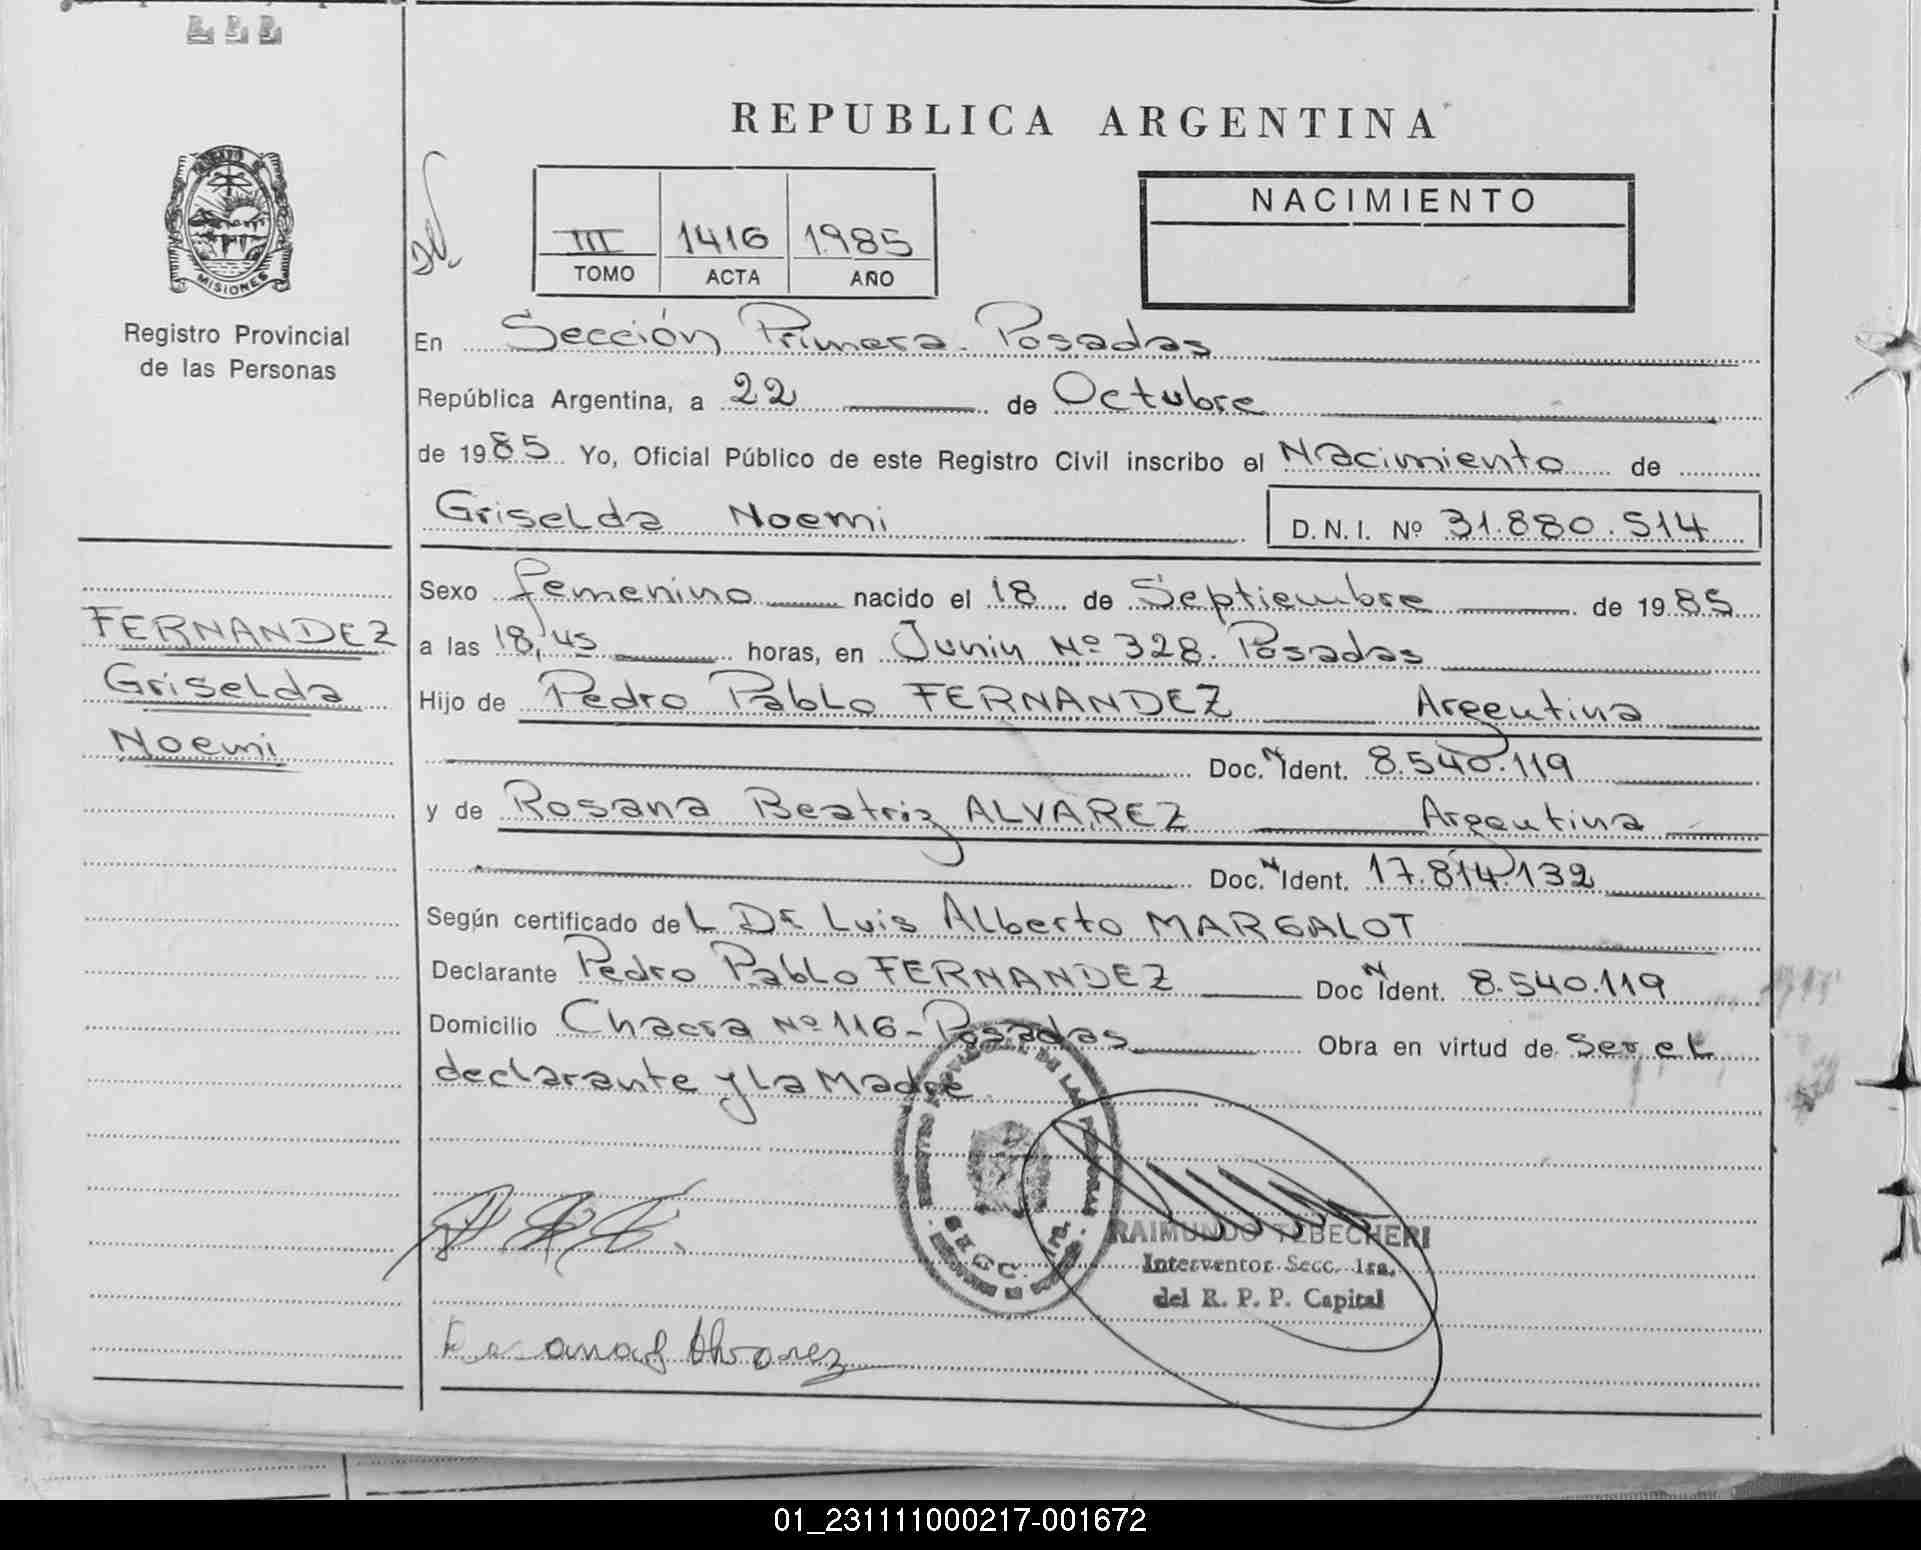 REPUBLICA ARGENTINA
NACIMIENTO
III 1416 1985
TOMO ACTA AÑO
MISIONES
Registro Provincial
de las Personas
En Sección Primera. Posadas
República Argentina, a 22 de Octubre
de 1985 Yo, Oficial Público de este Registro Civil inscribo el Nacimiento de
Griselda Noemi D.N.I. Nº 31.880.514
FERNANDEZ
Griselda
Noemi
Sexo femenino nacido el 18 de Septiembre de 1985
a las 18,45 horas, en Junin Nº 328. Posadas
Hijo de Pedro Pablo FERNANDEZ Argentina
Doc. N Ident. 8.540.119
y de Rosana Beatriz ALVAREZ Argentina
Doc. N Ident. 17.814.132
Según certificado del Dr Luis Alberto MARGALOT
Declarante Pedro Pablo FERNANDEZ Doc N Ident. 8.540.119
Domicilio Chacra Nº 116 - Posadas Obra en virtud de Ser el
declarante y La Madre
RAIMUNDO TEBECHERI
Interventor Secc. 1ra.
del R. P. P. Capital
01_231111000217-001672